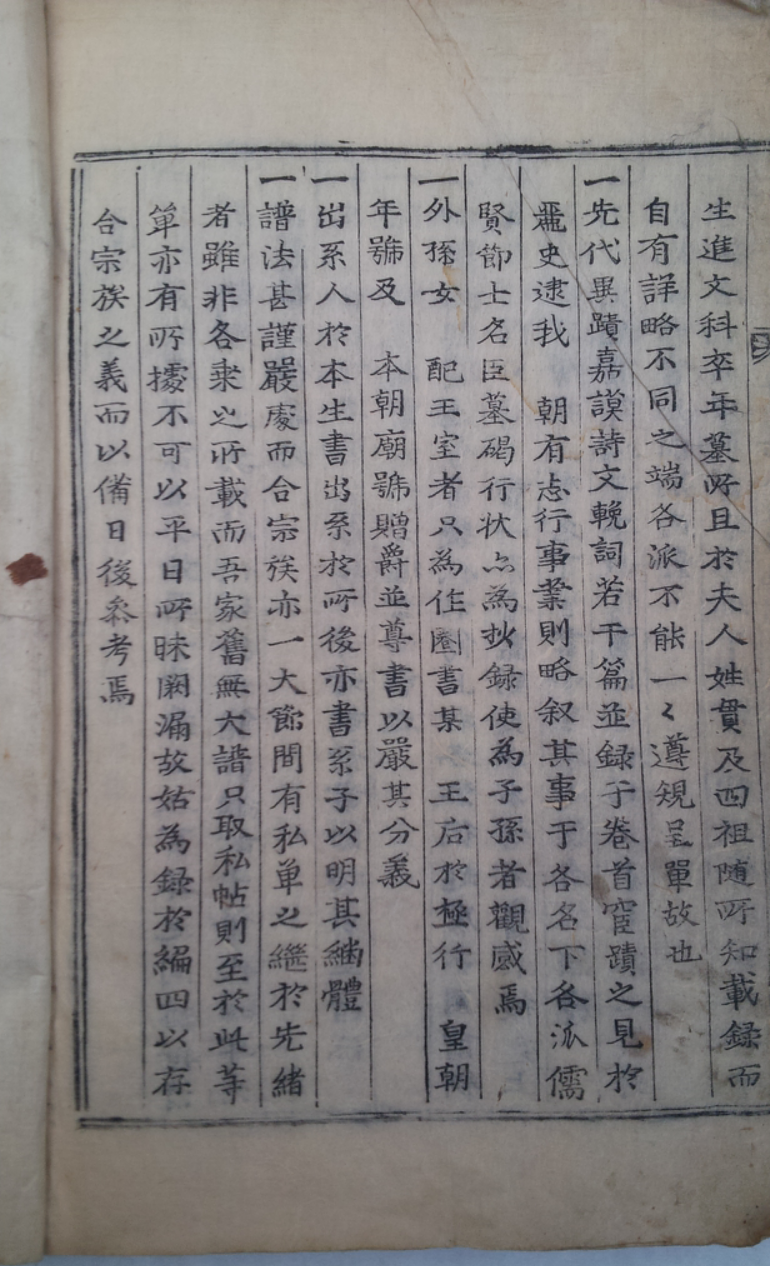 生進文科卒年墓所且於夫人姓貫及四祖随所知載録而
自有詳略不同之端各派不能一々遵規呈單故也
一先代異蹟嘉謨詩文輓詞若干篇並録于卷首宦蹟之見於
麗史逮我 朝有志行事業則略叙其事于各名下各派儒
賢節士名臣墓碣行状亦為抄録使為子孫者觀感焉
一外孫女 配王室者只為作圈書某 王后於極行 皇朝
年號及 本朝廟號贈爵並尊書以嚴其分義
一出系人於本生書出系於所後亦書系子以明其継體
一譜法甚謹嚴處而合宗族亦一大節間有私单之繼於先緒
者雖非各乘之所載而吾家舊無大譜只取私帖則至於此等
單亦有所據不可以平日所昧闕漏故姑為録於編四以存
合宗族之義而以備日後叅考焉